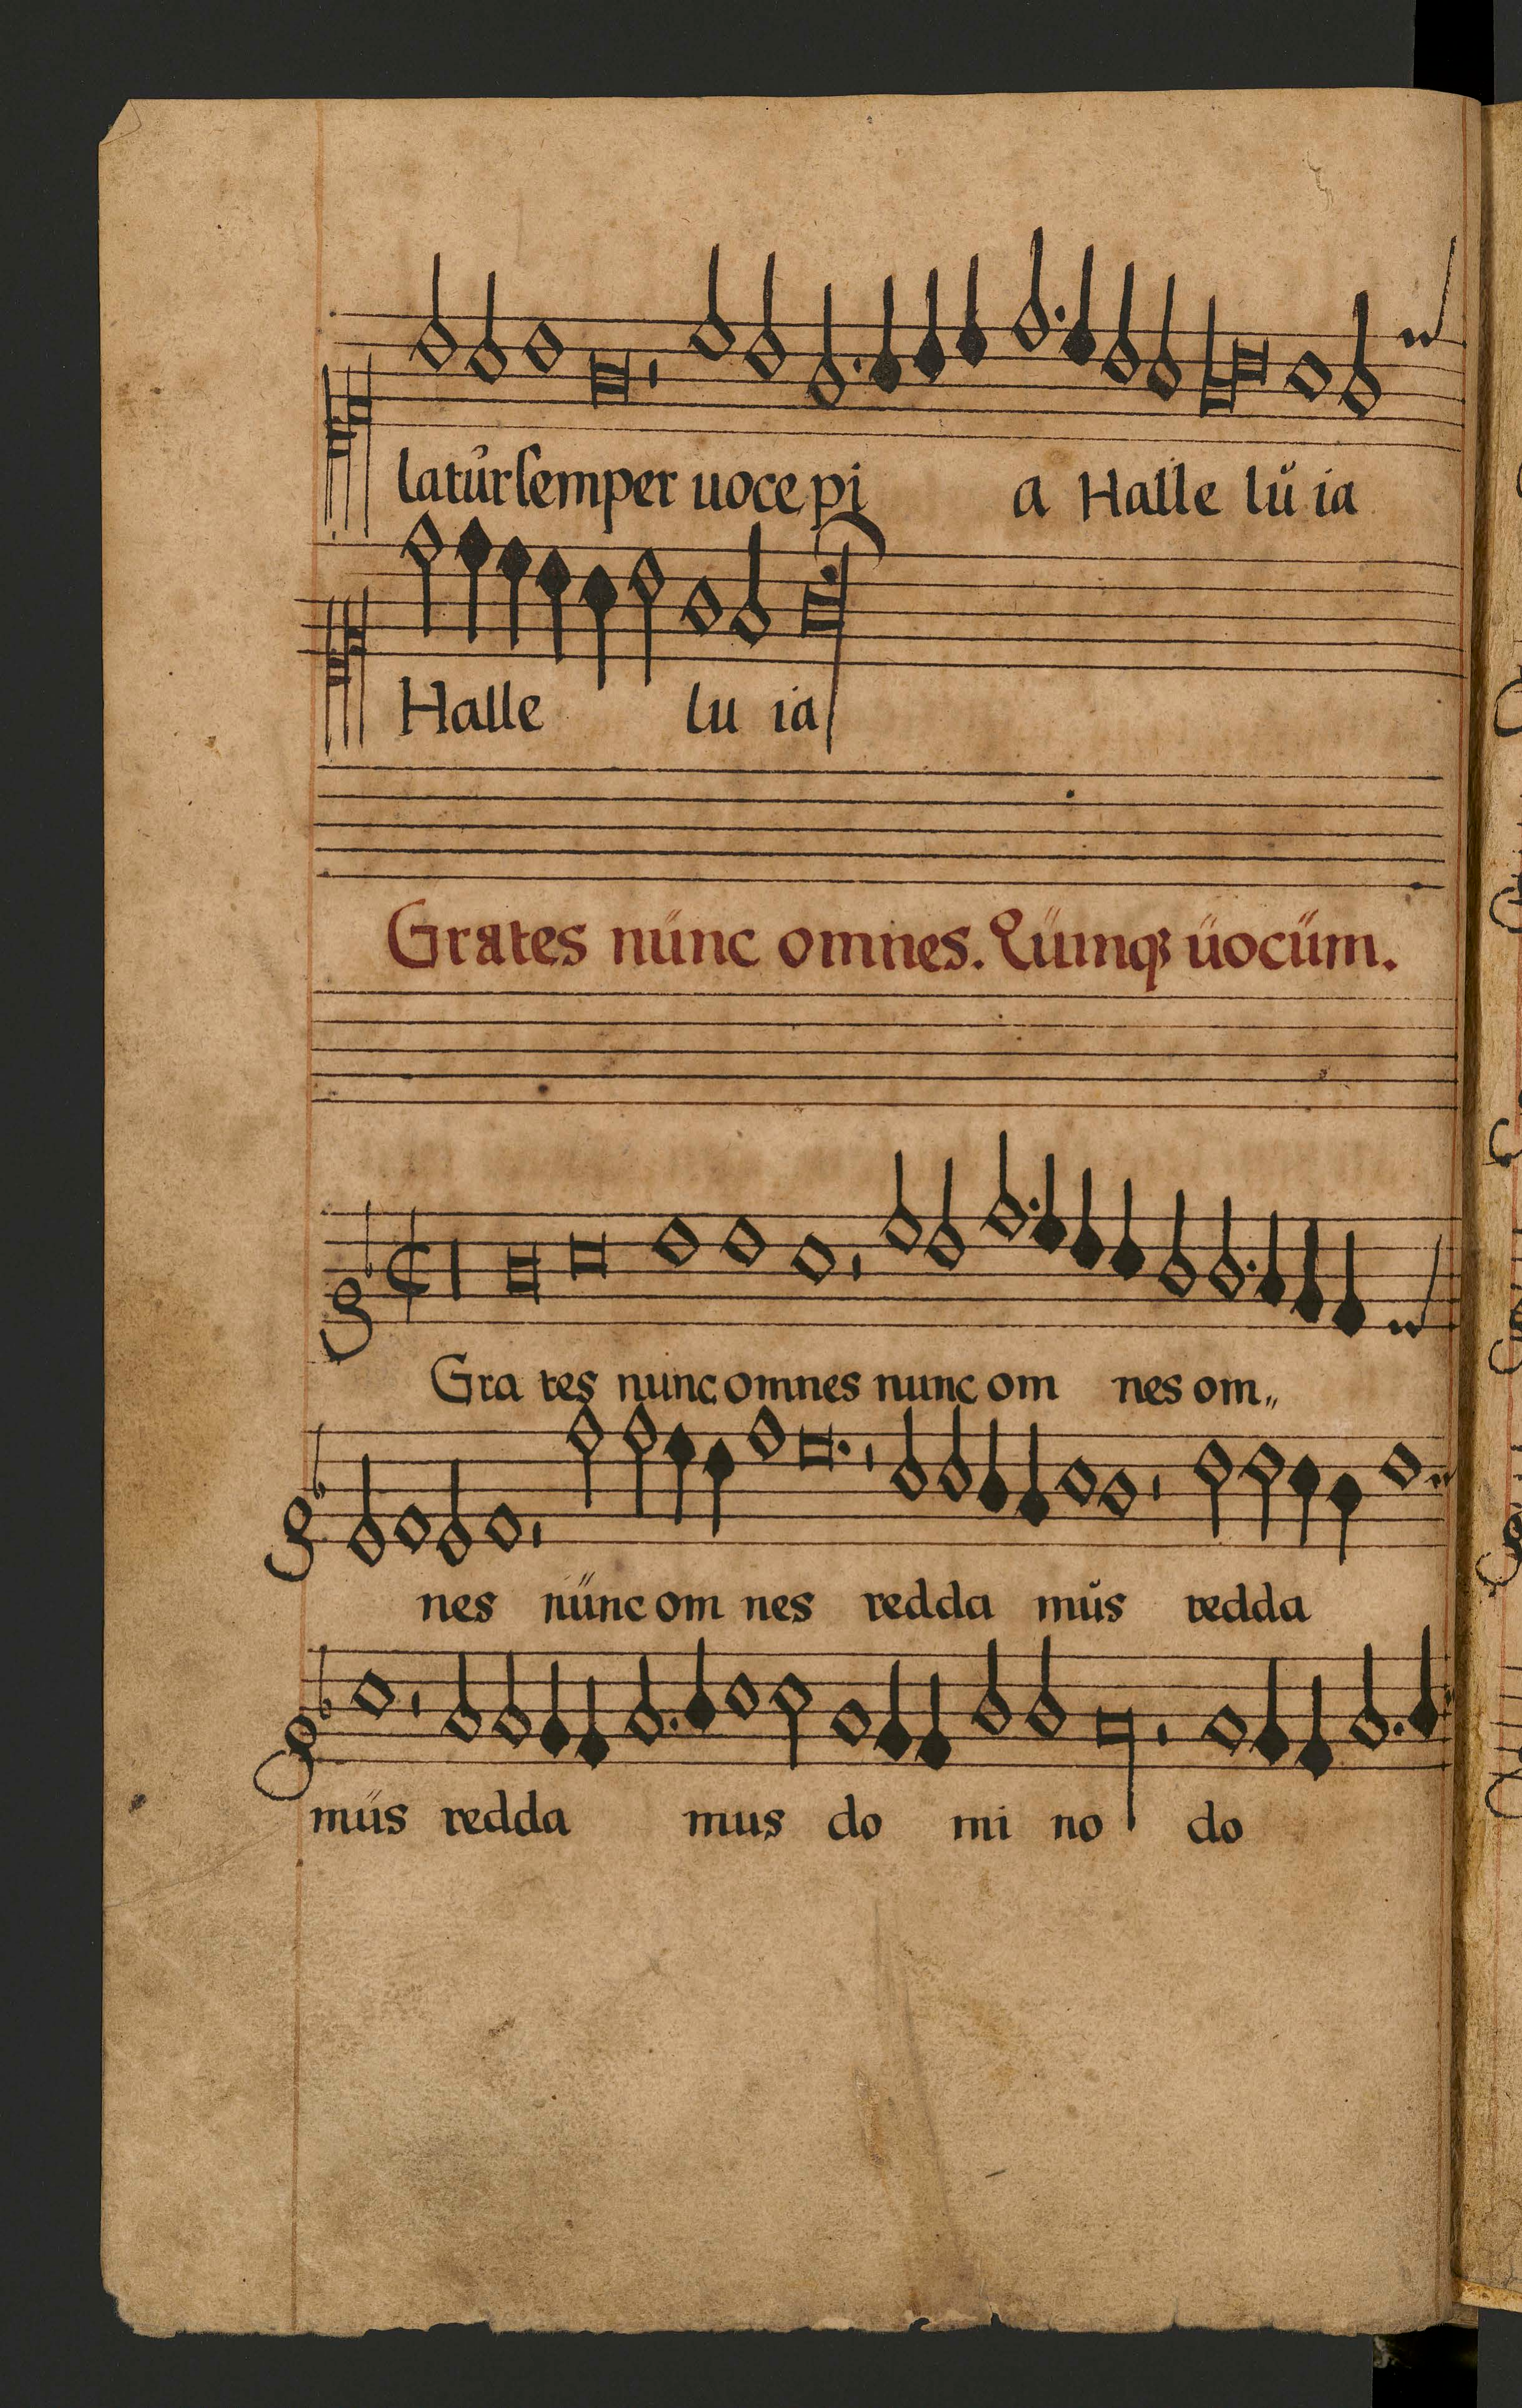 latůr ſemper uoce pi a Halle lŭ ia
Halle lu ia
Grates nűnc omnes. Qűinqꝫ űocűm.
Gra tes nunc omnes nunc om nes om„
nes nűnc om nes redda můs redda
műs redda mus do mi no do